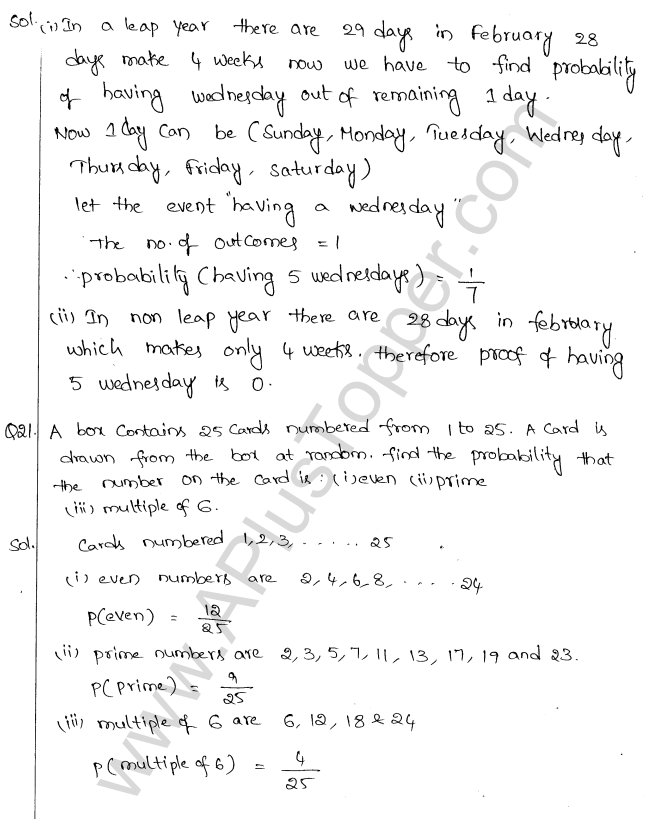 Sol. (i) In a leap year there are 29 days in February 28
days make 4 weeks now we have to find probability
of having wednesday out of remaining 1 day.
Now 1 day can be (Sunday, Monday, Tuesday, Wednesday,
Thursday, Friday, Saturday)
let the event "having a wednesday"
The no. of outcomes = 1
∴ probability (having 5 wednesdays) = 1/7
(ii) In non leap year there are 28 days in february
which makes only 4 weeks. therefore proof of having
5 wednesday is 0.
Q21. A box contains 25 cards numbered from 1 to 25. A card is
drawn from the box at random. find the probability that
the number on the card is : (i) even (ii) prime
(iii) multiple of 6.
Sol. Cards numbered 1, 2, 3, ...... 25
(i) even numbers are 2, 4, 6, 8, ..... 24
P(even) = 12/25
(ii) prime numbers are 2, 3, 5, 7, 11, 13, 17, 19 and 23.
P(prime) = 9/25
(iii) multiple of 6 are 6, 12, 18 & 24
P(multiple of 6) = 4/25
www.APlusTopper.com